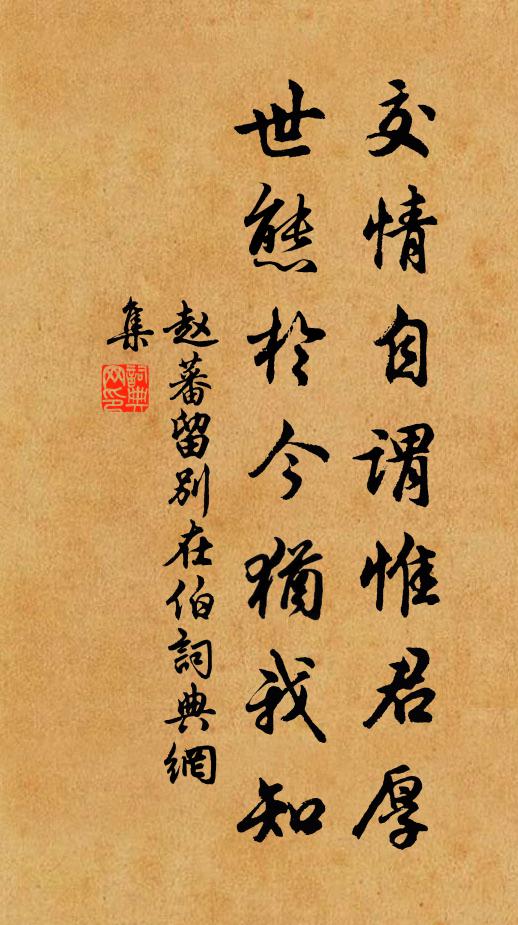 交情自谓惟君厚
世态於今犹我知
赵蕃留别在伯词典網
集
詞典網印